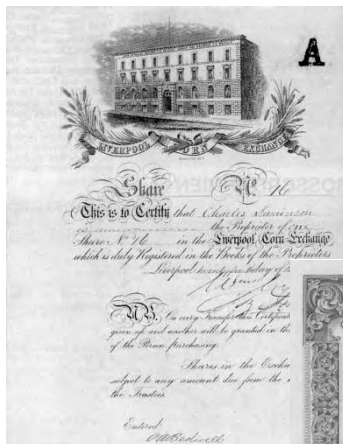 A
LIVERPOOL CORN EXCHANGE
Share No. 76
This is to Certify that Charles
the Proprietor of one
Share No. 76 in the Liverpool Corn Exchange
which is duly Registered in the Books of the Proprietors
Liverpool day of
NB. On every Transfer this Certificate
given up and another will be granted in the
of the Person purchasing.
Shares in the Excha
subject to any amount due from the
the Trustees.
Entered